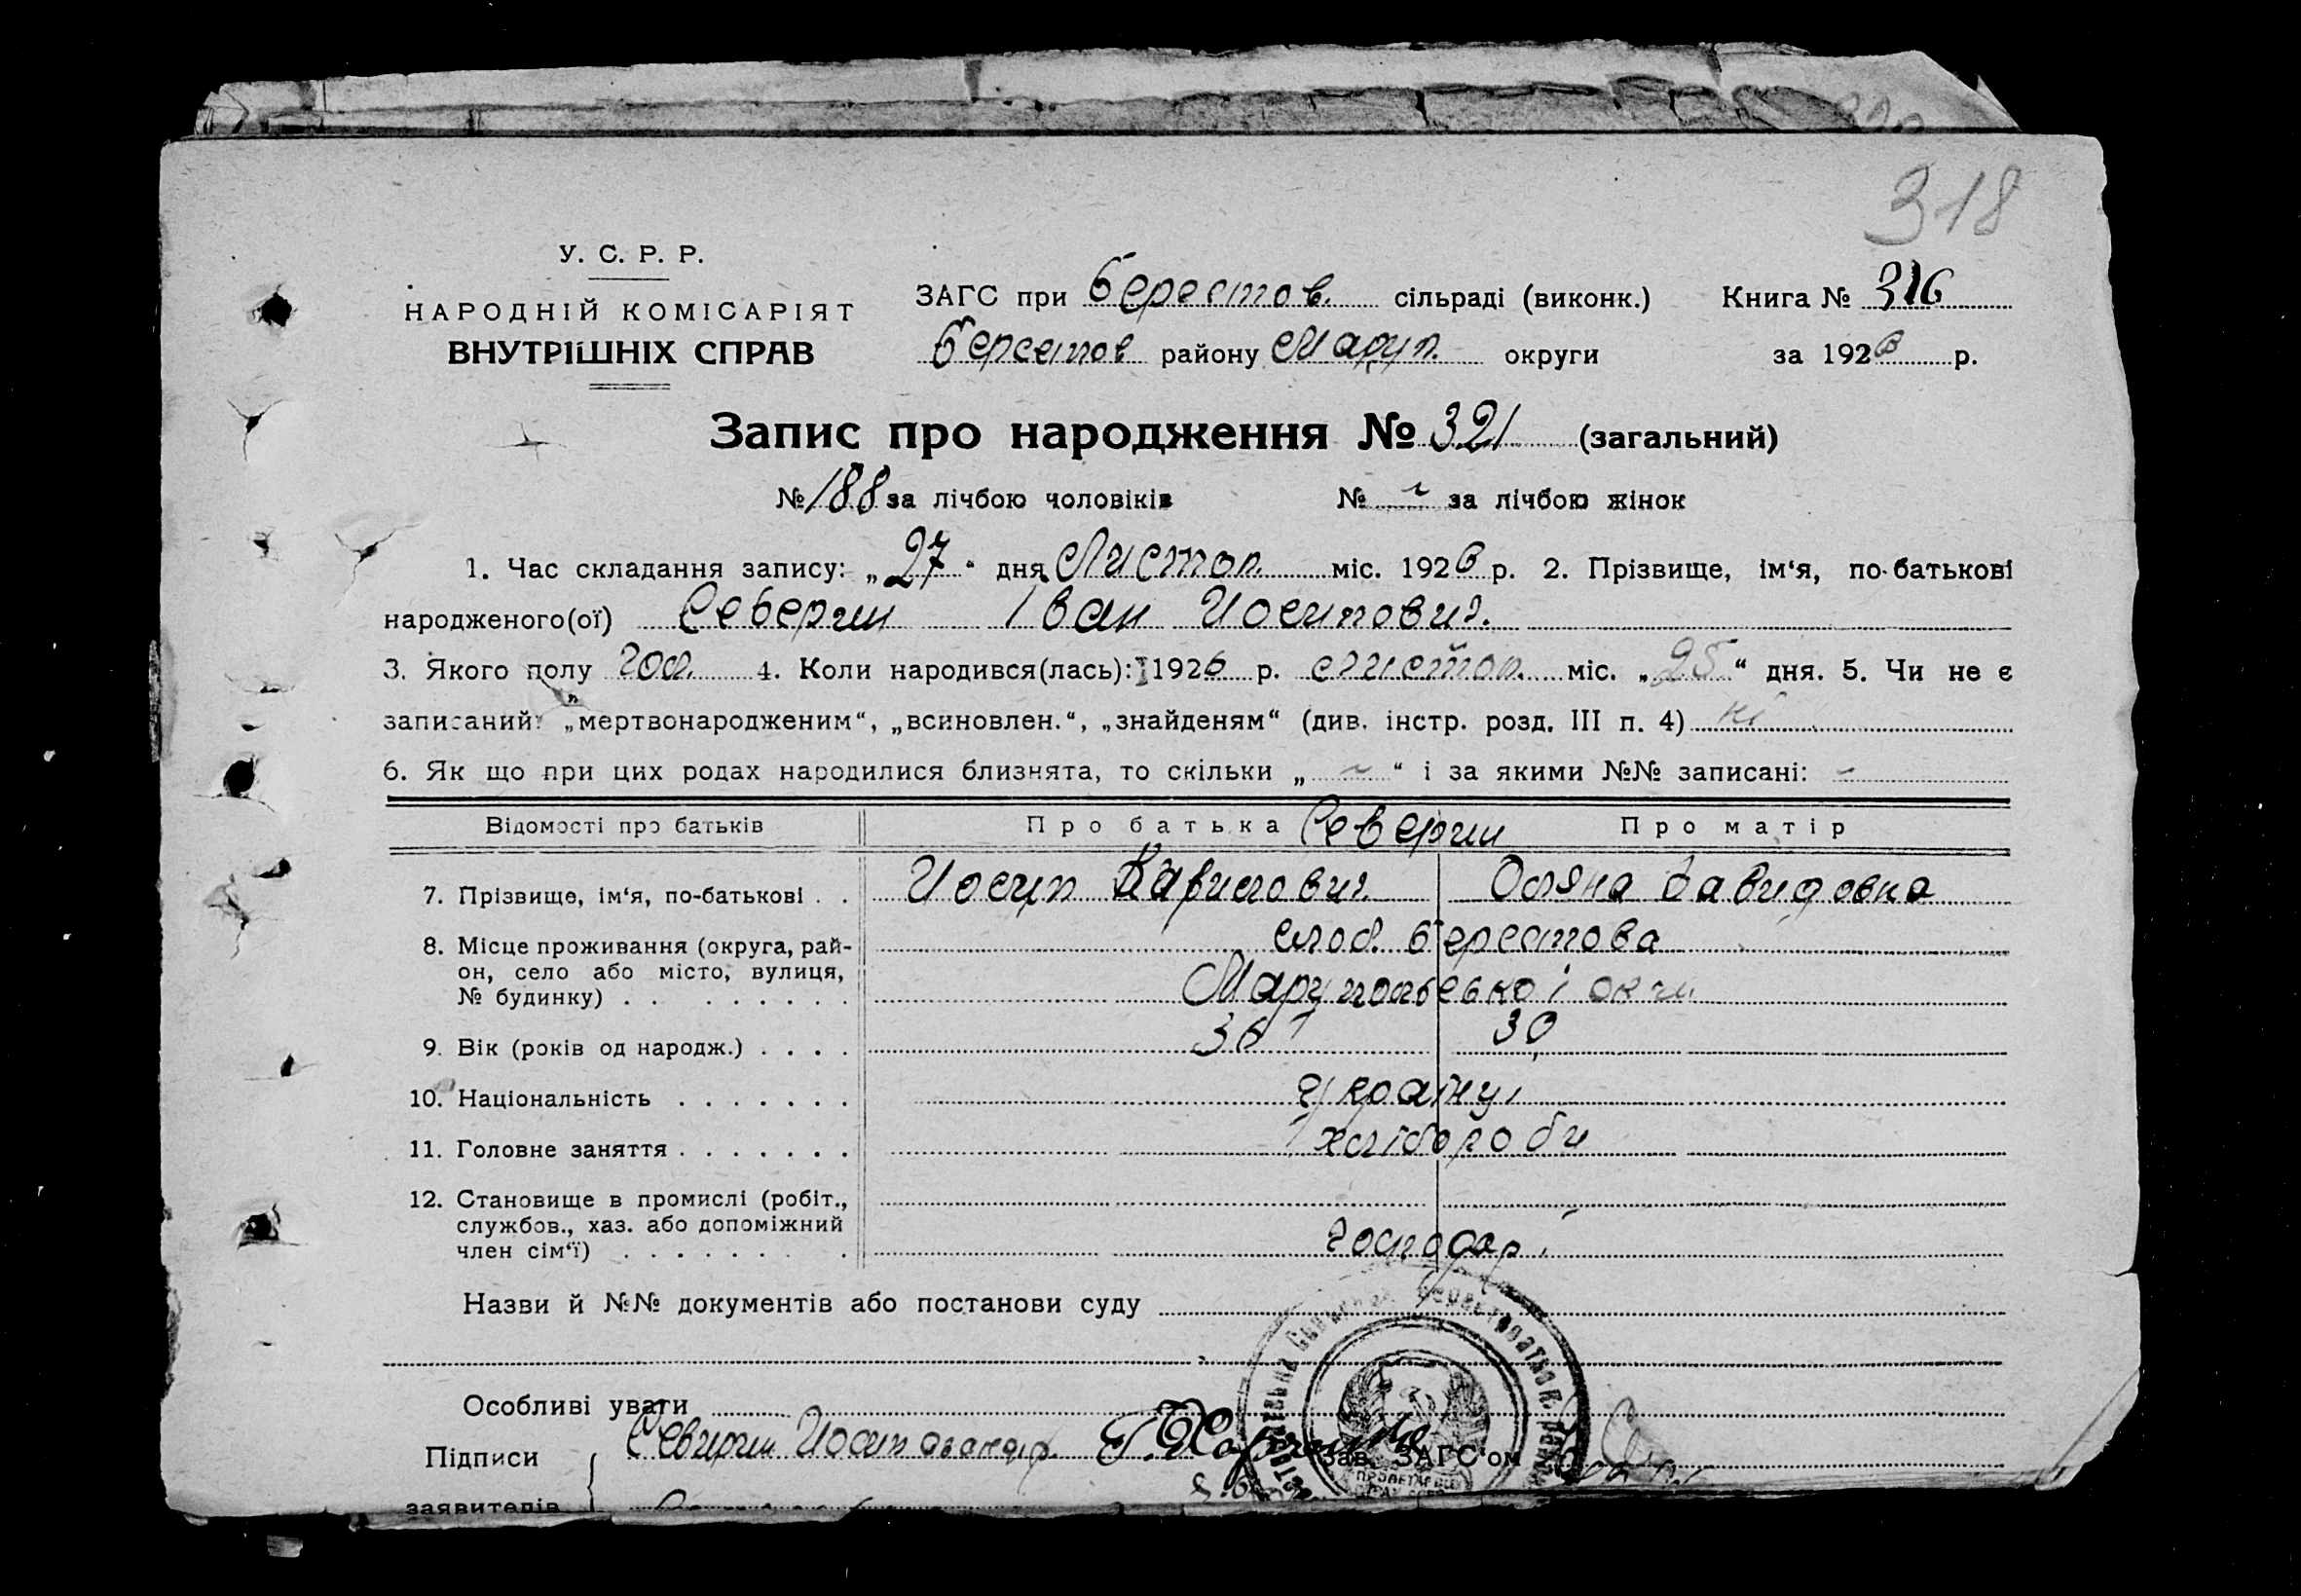 318
У. С. Р. Р.
НАРОДНІЙ КОМІСАРІЯТ
ВНУТРІШНІХ СПРАВ
ЗАГС при Берестов. сільраді (виконк.) Книга № 316
Берестов району Маруп. округи за 1926 р.
Запис про народження № 321 (загальний)
№ 188 за лічбою чоловіків № - за лічбою жінок
1. Час складання запису: „27“ дня Листоп. міс. 1926 р. 2. Прізвище, ім‘я, по-батькові
народженого(ої) Северин Іван Иосипович.
3. Якого полу чол. 4. Коли народився(лась): 1926 р. листоп. міс. „25“ дня. 5. Чи не є
записаний: „мертвонародженим“, „всиновлен.“, „знайденям“ (див. інстр. розд. III п. 4) ні
6. Як що при цих родах народилися близнята, то скільки „ - “ і за якими №№ записані: -
Відомості про батьків Про батька Северин Про матір
7. Прізвище, ім‘я, по-батькові . . Иосип Оляна Давидовна
8. Місце проживання (округа, рай-
он, село або місто, вулиця,
№ будинку) . . . . . . . . слоб. Берестова
Марупольської окр.
9. Вік (років од народж.) . . . . 36 30
10. Національність . . . . . . . українці
11. Головне заняття . . . . . . . хлібороби
12. Становище в промислі (робіт.,
службов., хаз. або допоміжний
член сім‘ї) . . . . . . . . . господарі
Назви й №№ документів або постанови суду
Особливі уваги
Підписи Северин Иосип
Зав. ЗАГС‘ом
заявителів